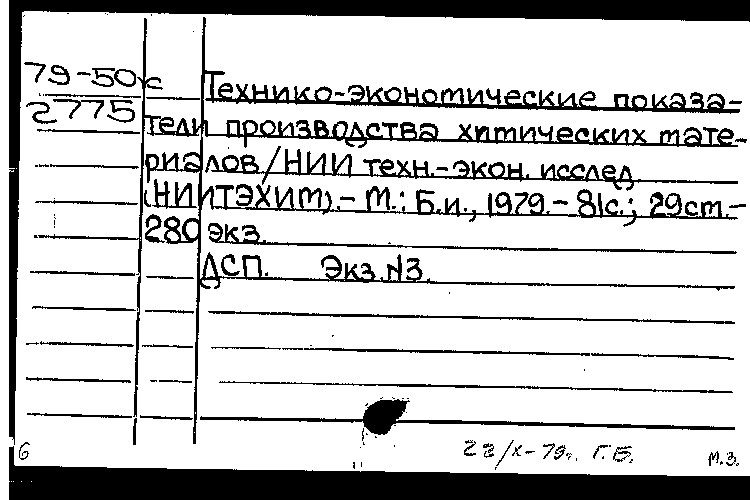 79-50к
2775
Технико-экономические показа-
тели производства химических мате-
риалов/НИИ техн.-экон. исслед.
(НИИТЭХИМ).- М.: Б.и., 1979.- 81с.; 29см.-
280 экз.
ДСП. Экз.N3.
6
22/X-79г. Г.Б.
М.З.